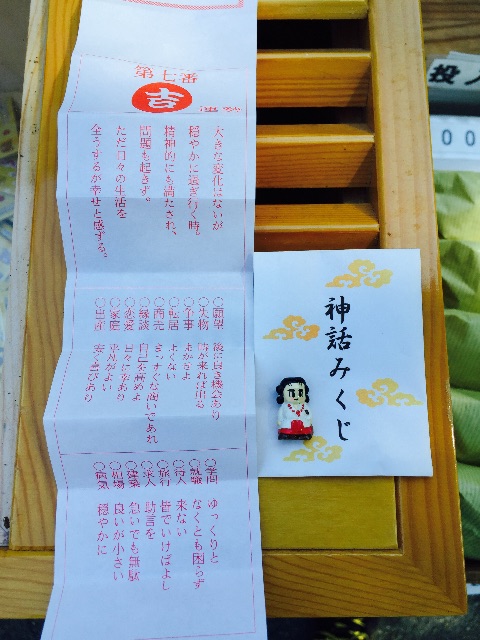 第七番
吉
運勢
大きな変化はないが
穏やかに過ぎ行く時。
精神的にも満たされ、
問題も起きず。
ただ日々の生活を
全うするが幸せと感ずる。
○願望 後に良き機会あり
○失物 時が来れば出る
○金事 まかせよ
○転居 よくない
○商売 まっすぐな商いであれ
○縁談 自己を高めよ
○恋愛 日々に幸あり
○家庭 平凡がよい
○出産 安く喜びあり
○学問 ゆっくりと
○就職 なくとも困らず
○待人 来ない
○旅行 皆でいけばよし
○求人 助言を
○建築 急いでも無駄
○相場 良いが小さい
○病気 穏やかに
神話みくじ
投入
00